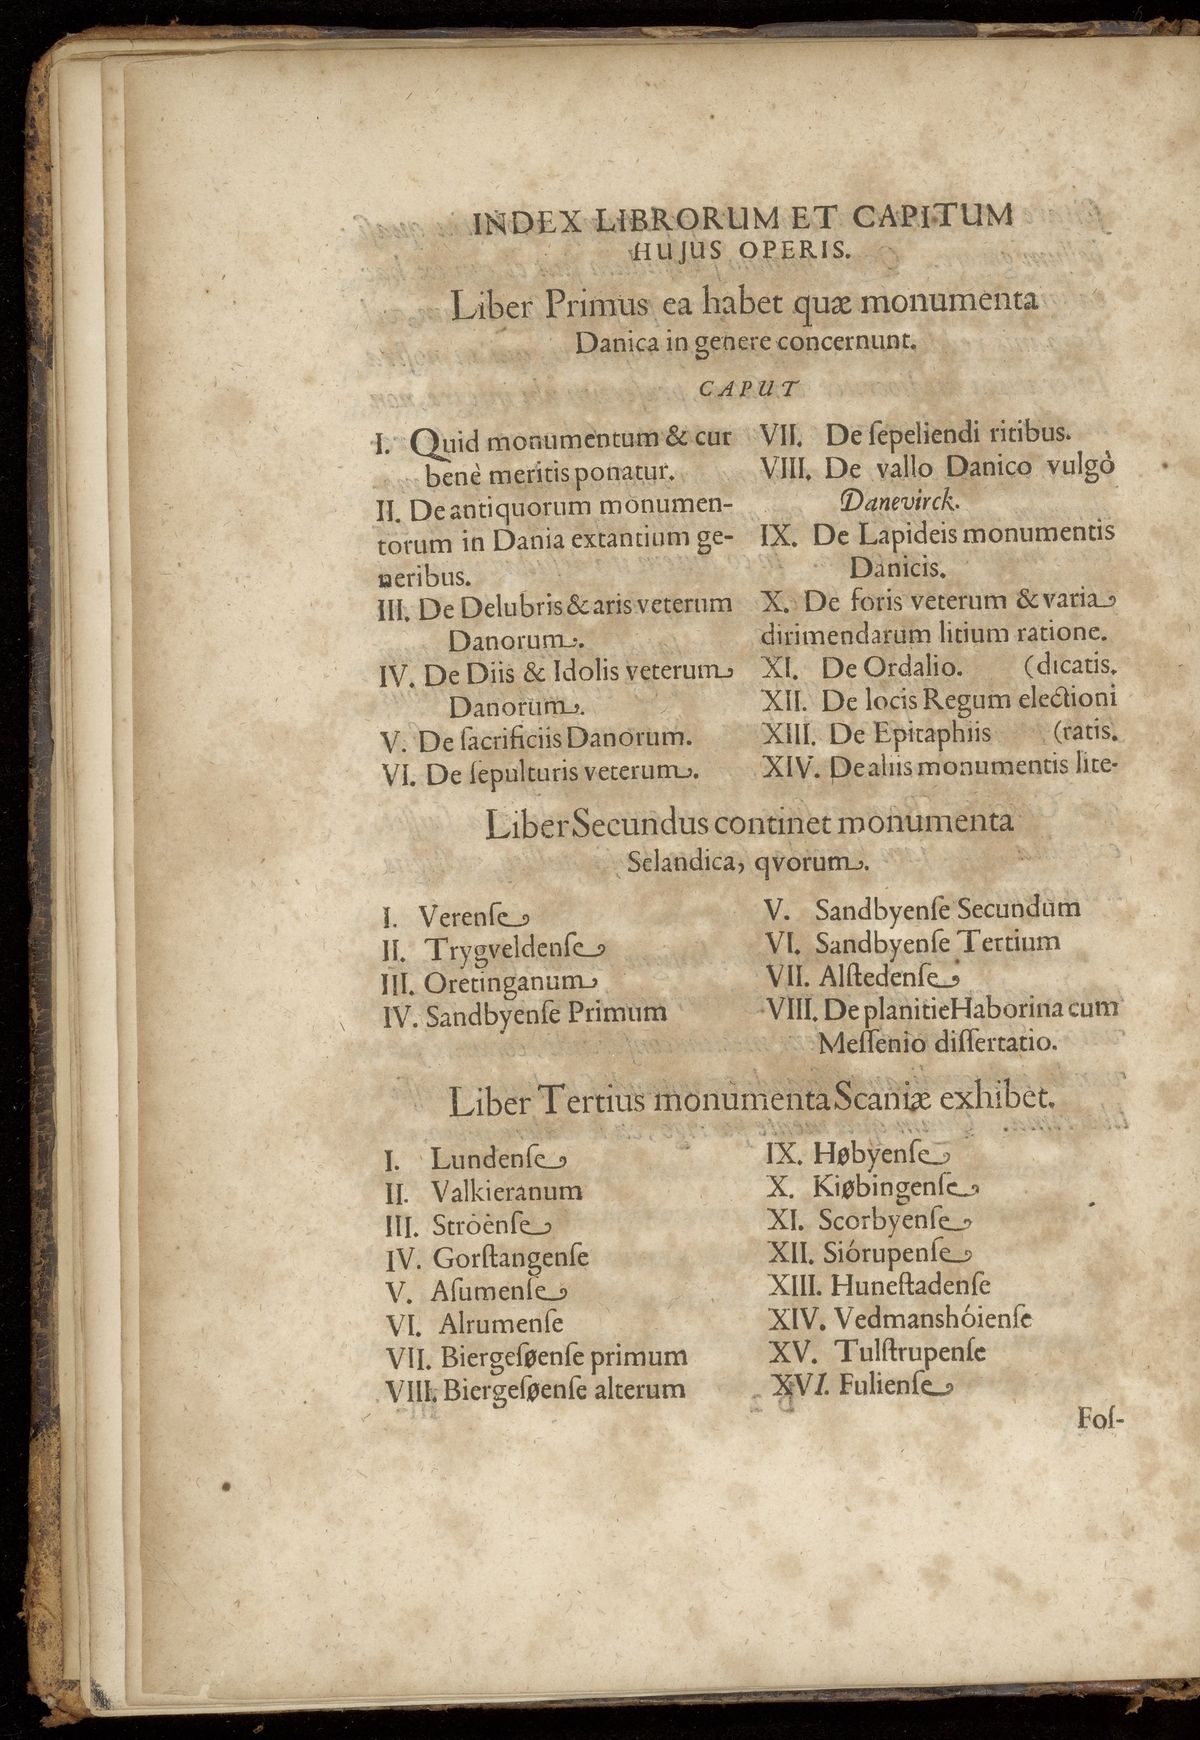 INDEX LIBRORUM ET CAPITUM
HUJUS OPERIS.
Liber Primus ea habet quæ monumenta
Danica in genere concernunt.
CAPUT
I. Quid monumentum & cur
benè meritis ponatur.
II. De antiquorum monumen-
torum in Dania extantium ge-
neribus.
III. De Delubris & aris veterum
Danorum.
IV. De Diis & Idolis veterum
Danorum.
V. De ſacrificiis Danorum.
VI. De ſepulturis veterum.
VII. De ſepeliendi ritibus.
VIII. De vallo Danico vulgò
Danevirck.
IX. De Lapideis monumentis
Danicis.
X. De foris veterum & varia
dirimendarum litium ratione.
XI. De Ordalio. (dicatis.
XII. De locis Regum electioni
XIII. De Epitaphiis (ratis.
XIV. De aliis monumentis lite-
Liber Secundus continet monumenta
Selandica, qvorum.
I. Verenſe
II. Trygveldenſe
III. Oretinganum
IV. Sandbyenſe Primum
V. Sandbyenſe Secundum
VI. Sandbyenſe Tertium
VII. Alſtedenſe
VIII. De planitie Haborina cum
Meſſenio diſſertatio.
Liber Tertius monumenta Scaniæ exhibet.
I. Lundenſe
II. Valkieranum
III. Stròènſe
IV. Gorſtangenſe
V. Aſumenſe
VI. Alrumenſe
VII. Biergeſøenſe primum
VIII. Biergeſøenſe alterum
IX. Høbyenſe
X. Kiøbingenſe
XI. Scorbyenſe
XII. Siórupenſe
XIII. Huneſtadenſe
XIV. Vedmanshóienſe
XV. Tulſtrupenſe
XVI. Fulienſe
Foſ-